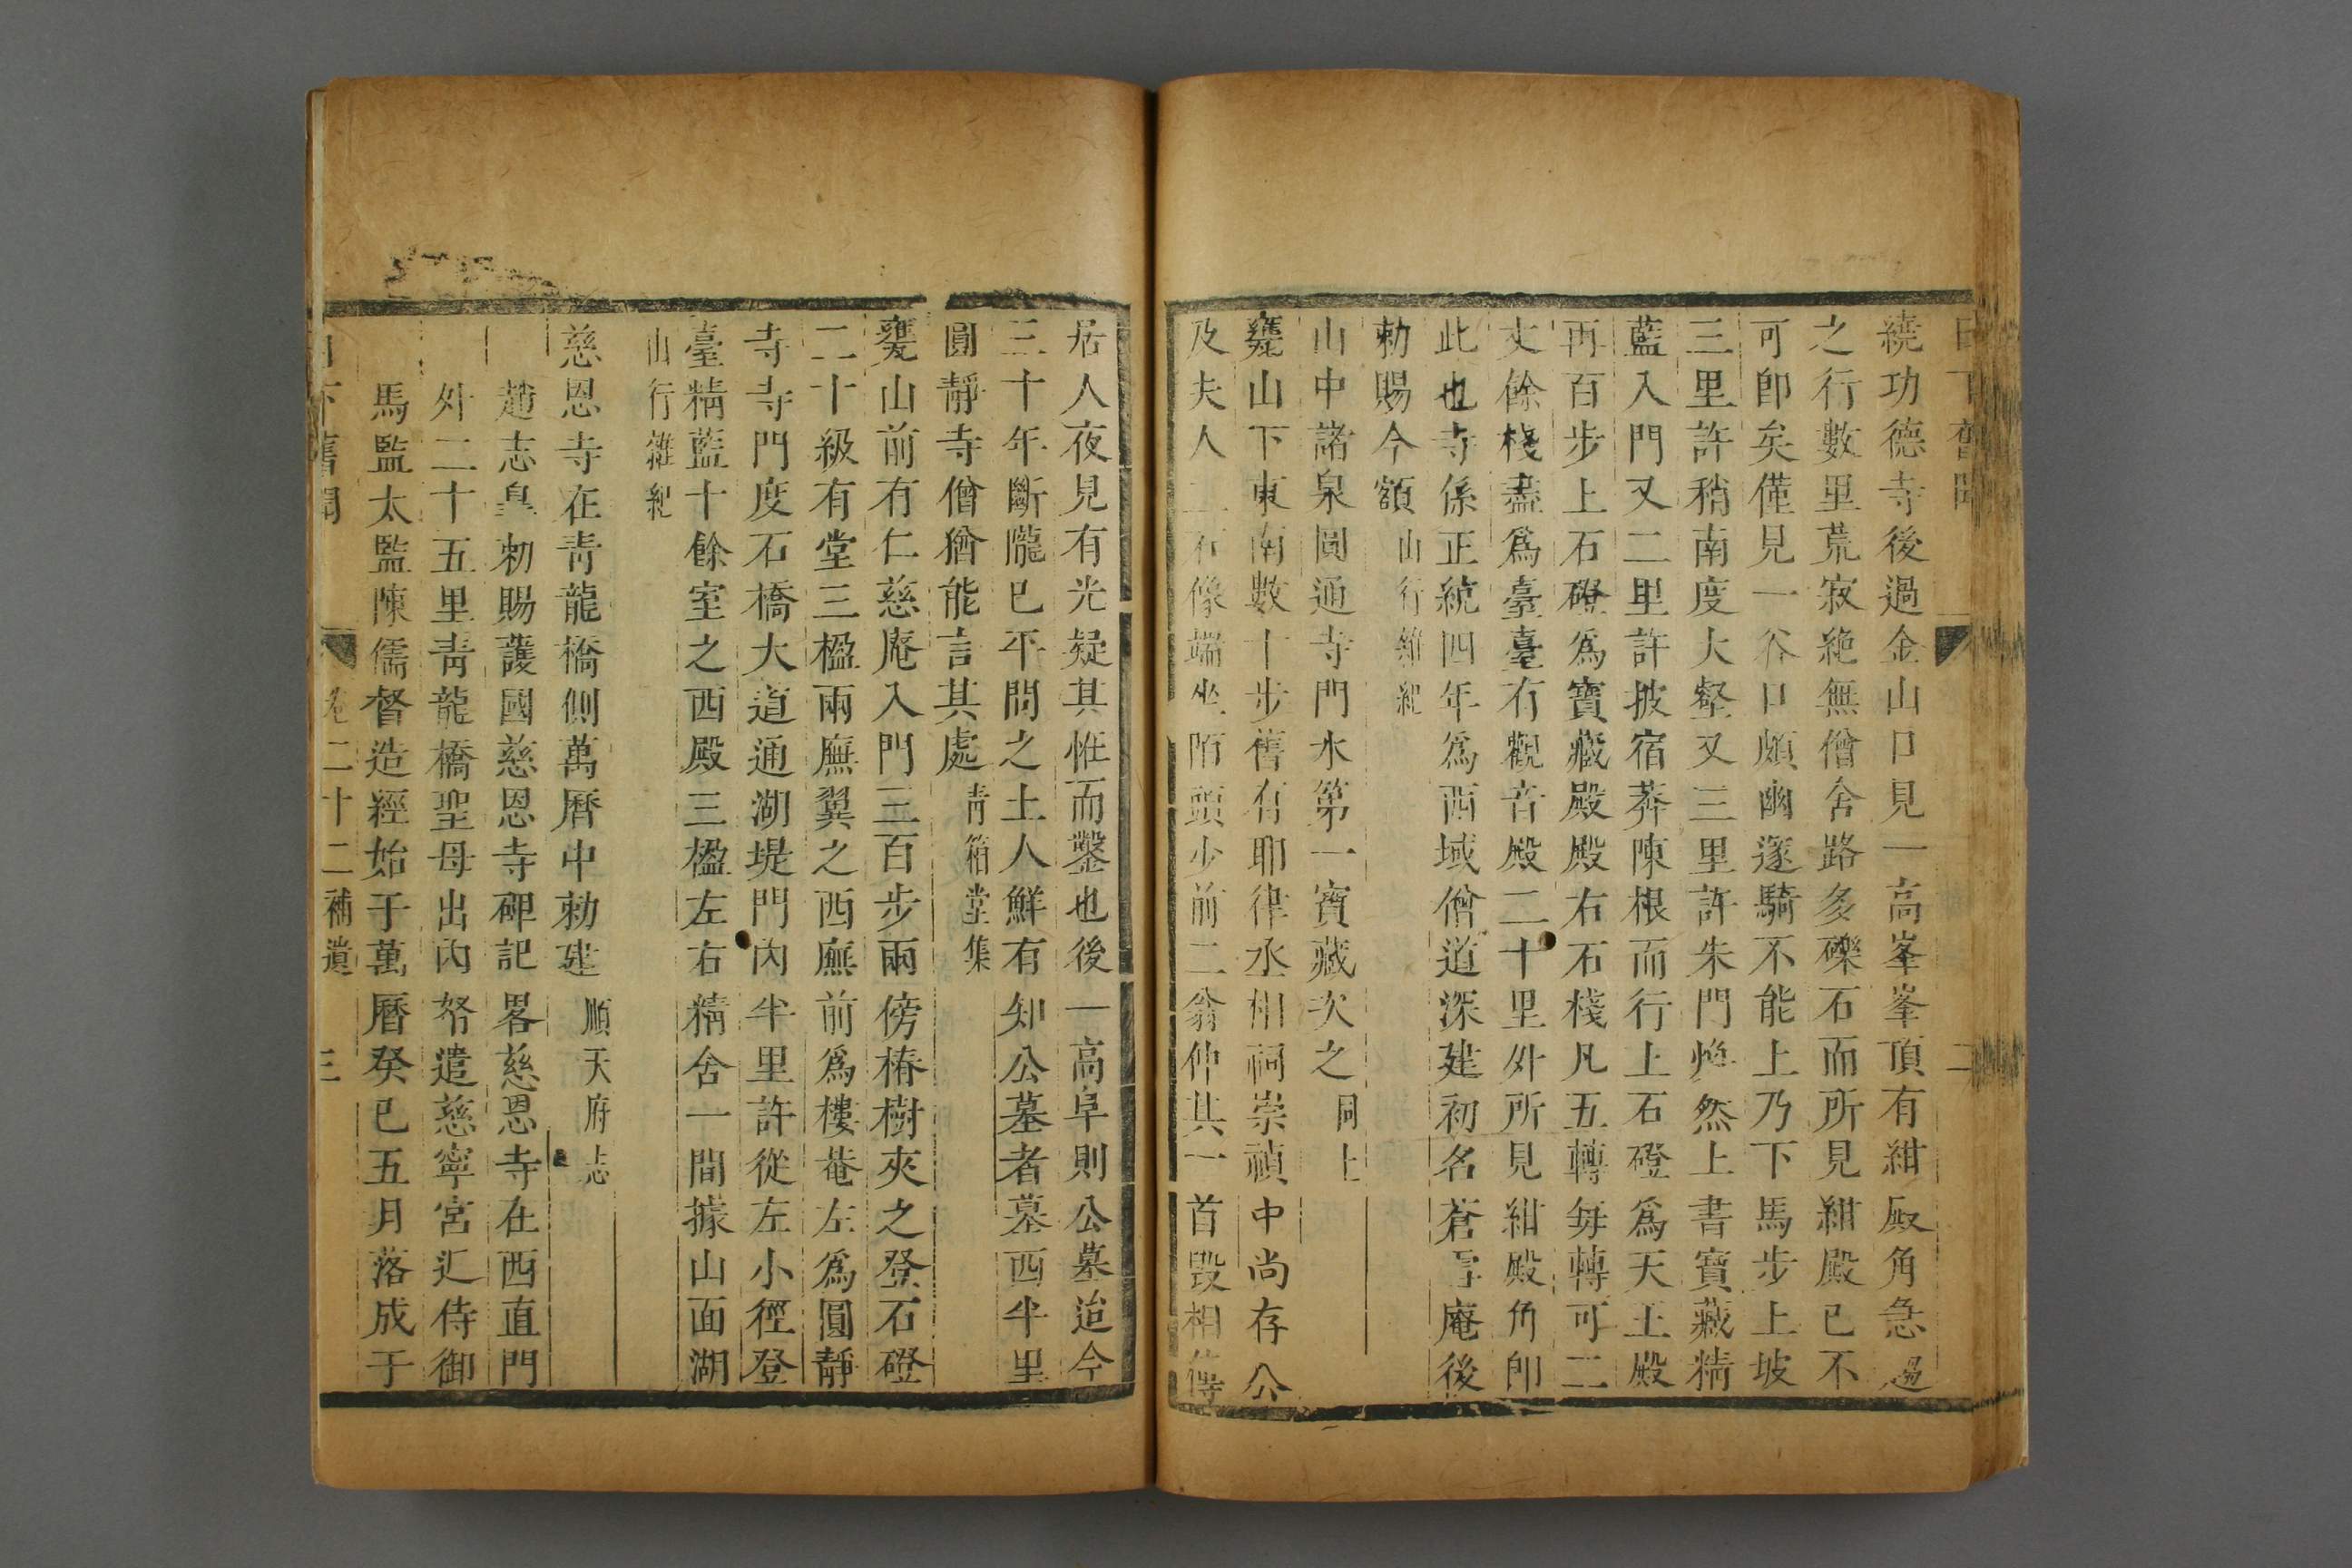 日下舊聞 二
繞功德寺後過金山口見一高峯峯頂有紺殿角急趨
之行數里荒寂絶無僧舍路多礫石而所見紺殿已不
可即矣僅見一谷口頗幽邃騎不能上乃下馬步上坡
三里許稍南度大壑又三里許朱門煥然上書寶藏精
藍入門又二里許披宿莽陳根而行上石磴爲天王殿
再百步上石磴爲寶藏殿殿右石棧凡五轉每轉可二
丈餘棧盡爲臺臺有觀音殿二十里外所見紺殿角即
此也寺係正統四年爲西域僧道深建初名蒼雪庵後
勅賜今額山行雜紀
山中諸泉圓通寺門水第一寶藏次之同上
甕山下東南數十步舊有耶律丞相祠崇禎中尚存公
及夫人二石像端坐陌頭少前二翁仲其一首毀相傳
居人夜見有光疑其怪而鑿也後一高阜則公墓迨今
三十年斷隴已平問之土人鮮有知公墓者墓西半里
圓靜寺僧猶能言其處青箱堂集
甕山前有仁慈庵入門三百步兩傍椿樹夾之登石磴
二十級有堂三楹兩廡翼之西廡前爲樓菴左爲圓靜
寺寺門度石橋大道通湖堤門內半里許從左小徑登
臺精藍十餘室之西殿三楹左右精舍一間據山面湖
山行雜紀
慈恩寺在青龍橋側萬曆中勅建順天府志
趙志臯勅賜護國慈恩寺碑記畧慈恩寺在西直門
外二十五里青龍橋聖母出內帑遣慈寧宮近侍御
馬監太監陳儒督造經始于萬曆癸巳五月落成于
日下舊聞 卷二十二補遺 三